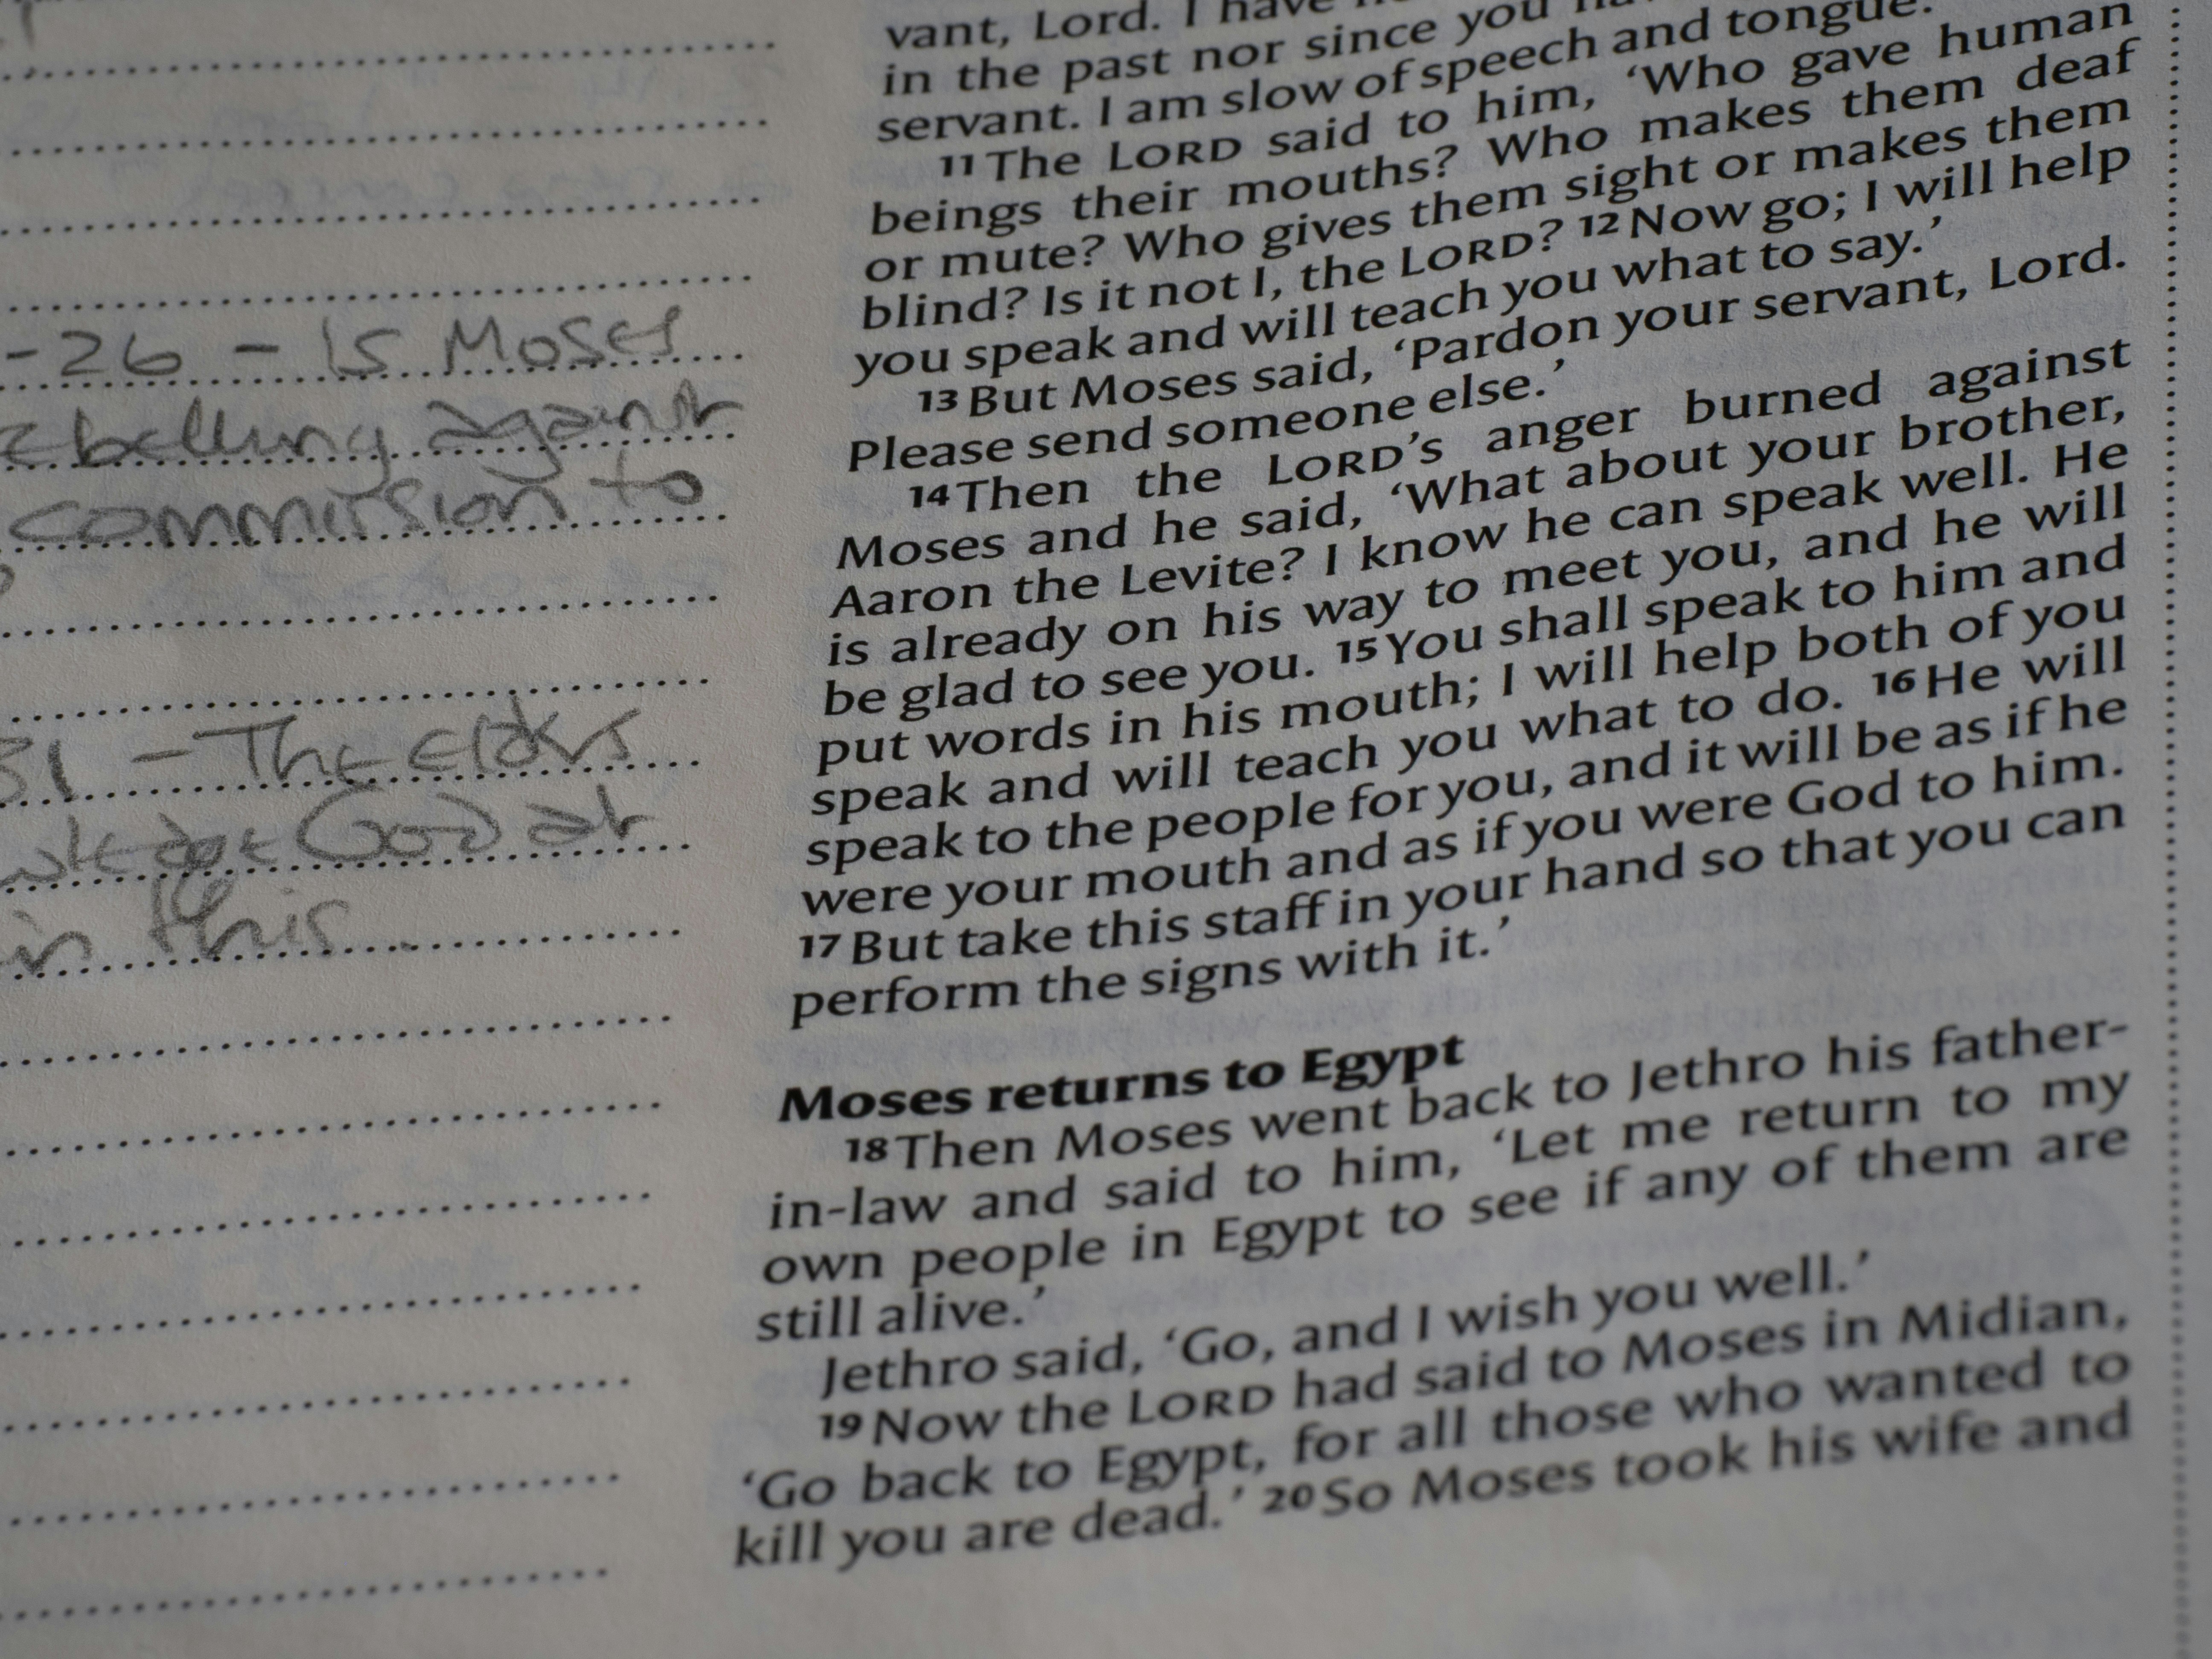 - 26 - Is Moses
ebelling against
commission to
31 - The elders
God at
in this.
vant, Lord. I have
in the past nor since you
servant. I am slow of speech and tongue.’
11 The LORD said to him, ‘Who gave human
beings their mouths? Who makes them deaf
or mute? Who gives them sight or makes them
blind? Is it not I, the LORD? 12 Now go; I will help
you speak and will teach you what to say.’
13 But Moses said, ‘Pardon your servant, Lord.
Please send someone else.’
14 Then the LORD’s anger burned against
Moses and he said, ‘What about your brother,
Aaron the Levite? I know he can speak well. He
is already on his way to meet you, and he will
be glad to see you. 15 You shall speak to him and
put words in his mouth; I will help both of you
speak and will teach you what to do. 16 He will
speak to the people for you, and it will be as if he
were your mouth and as if you were God to him.
17 But take this staff in your hand so that you can
perform the signs with it.’
Moses returns to Egypt
18 Then Moses went back to Jethro his father-
in-law and said to him, ‘Let me return to my
own people in Egypt to see if any of them are
still alive.’
Jethro said, ‘Go, and I wish you well.’
19 Now the LORD had said to Moses in Midian,
‘Go back to Egypt, for all those who wanted to
kill you are dead.’ 20 So Moses took his wife and